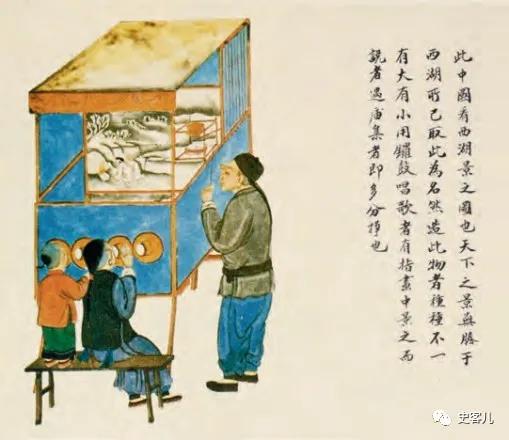 此中國看西湖景之圖也天下之景無勝于
西湖所已取此為名然造此物者種種不一
有大有小用鑼鼓唱歌者有指畫中景之而
説者遇庙集者即多分掙也
史客儿